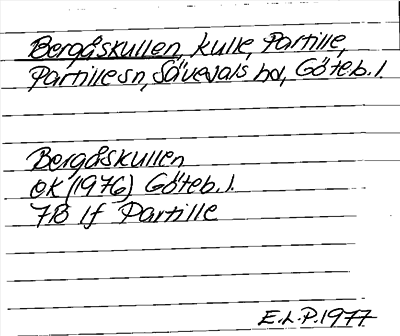 Bergåskullen, kulle, Partille,
Partille sn, Sävedals hd, Göteb. l.
Bergåskullen
OK (1976) Göteb. l.
7B 1f Partille
E.L.P. 1977